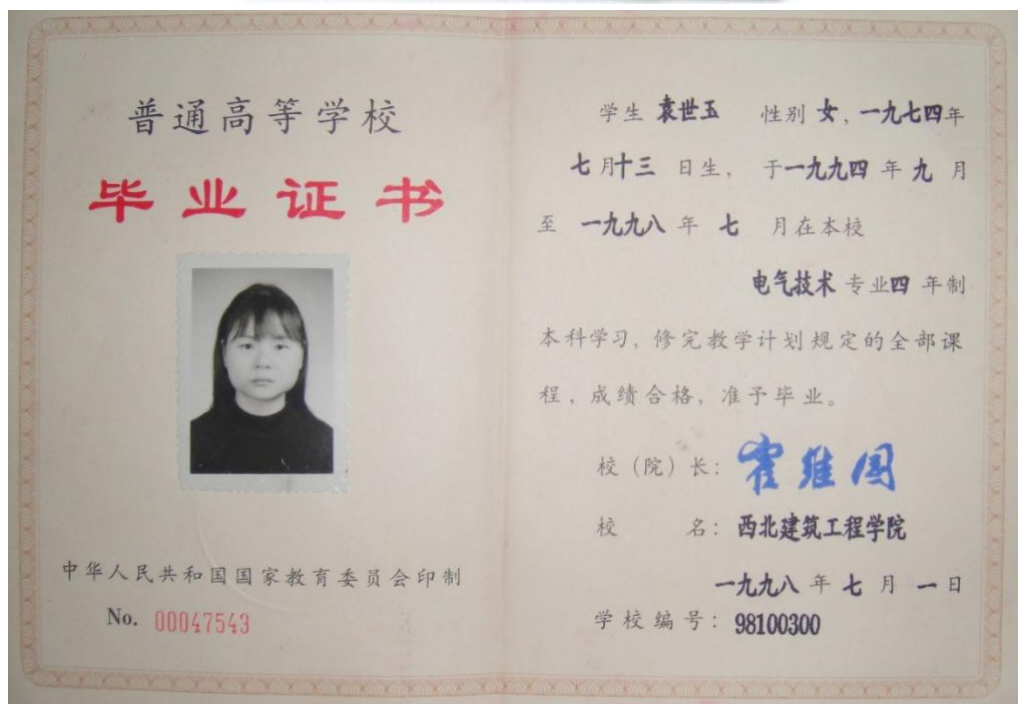 普通高等学校
毕业证书
中华人民共和国国家教育委员会印制
No. 00047543
学生 袁世玉 性别 女，一九七四年
七月十三 日生， 于一九九四 年 九 月
至 一九九八 年 七 月在本校
电气技术 专业四 年制
本科学习，修完教学计划规定的全部课
程，成绩合格，准予毕业。
校（院）长：霍维国
校 名：西北建筑工程学院
一九九八 年 七 月 一 日
学校编号：98100300